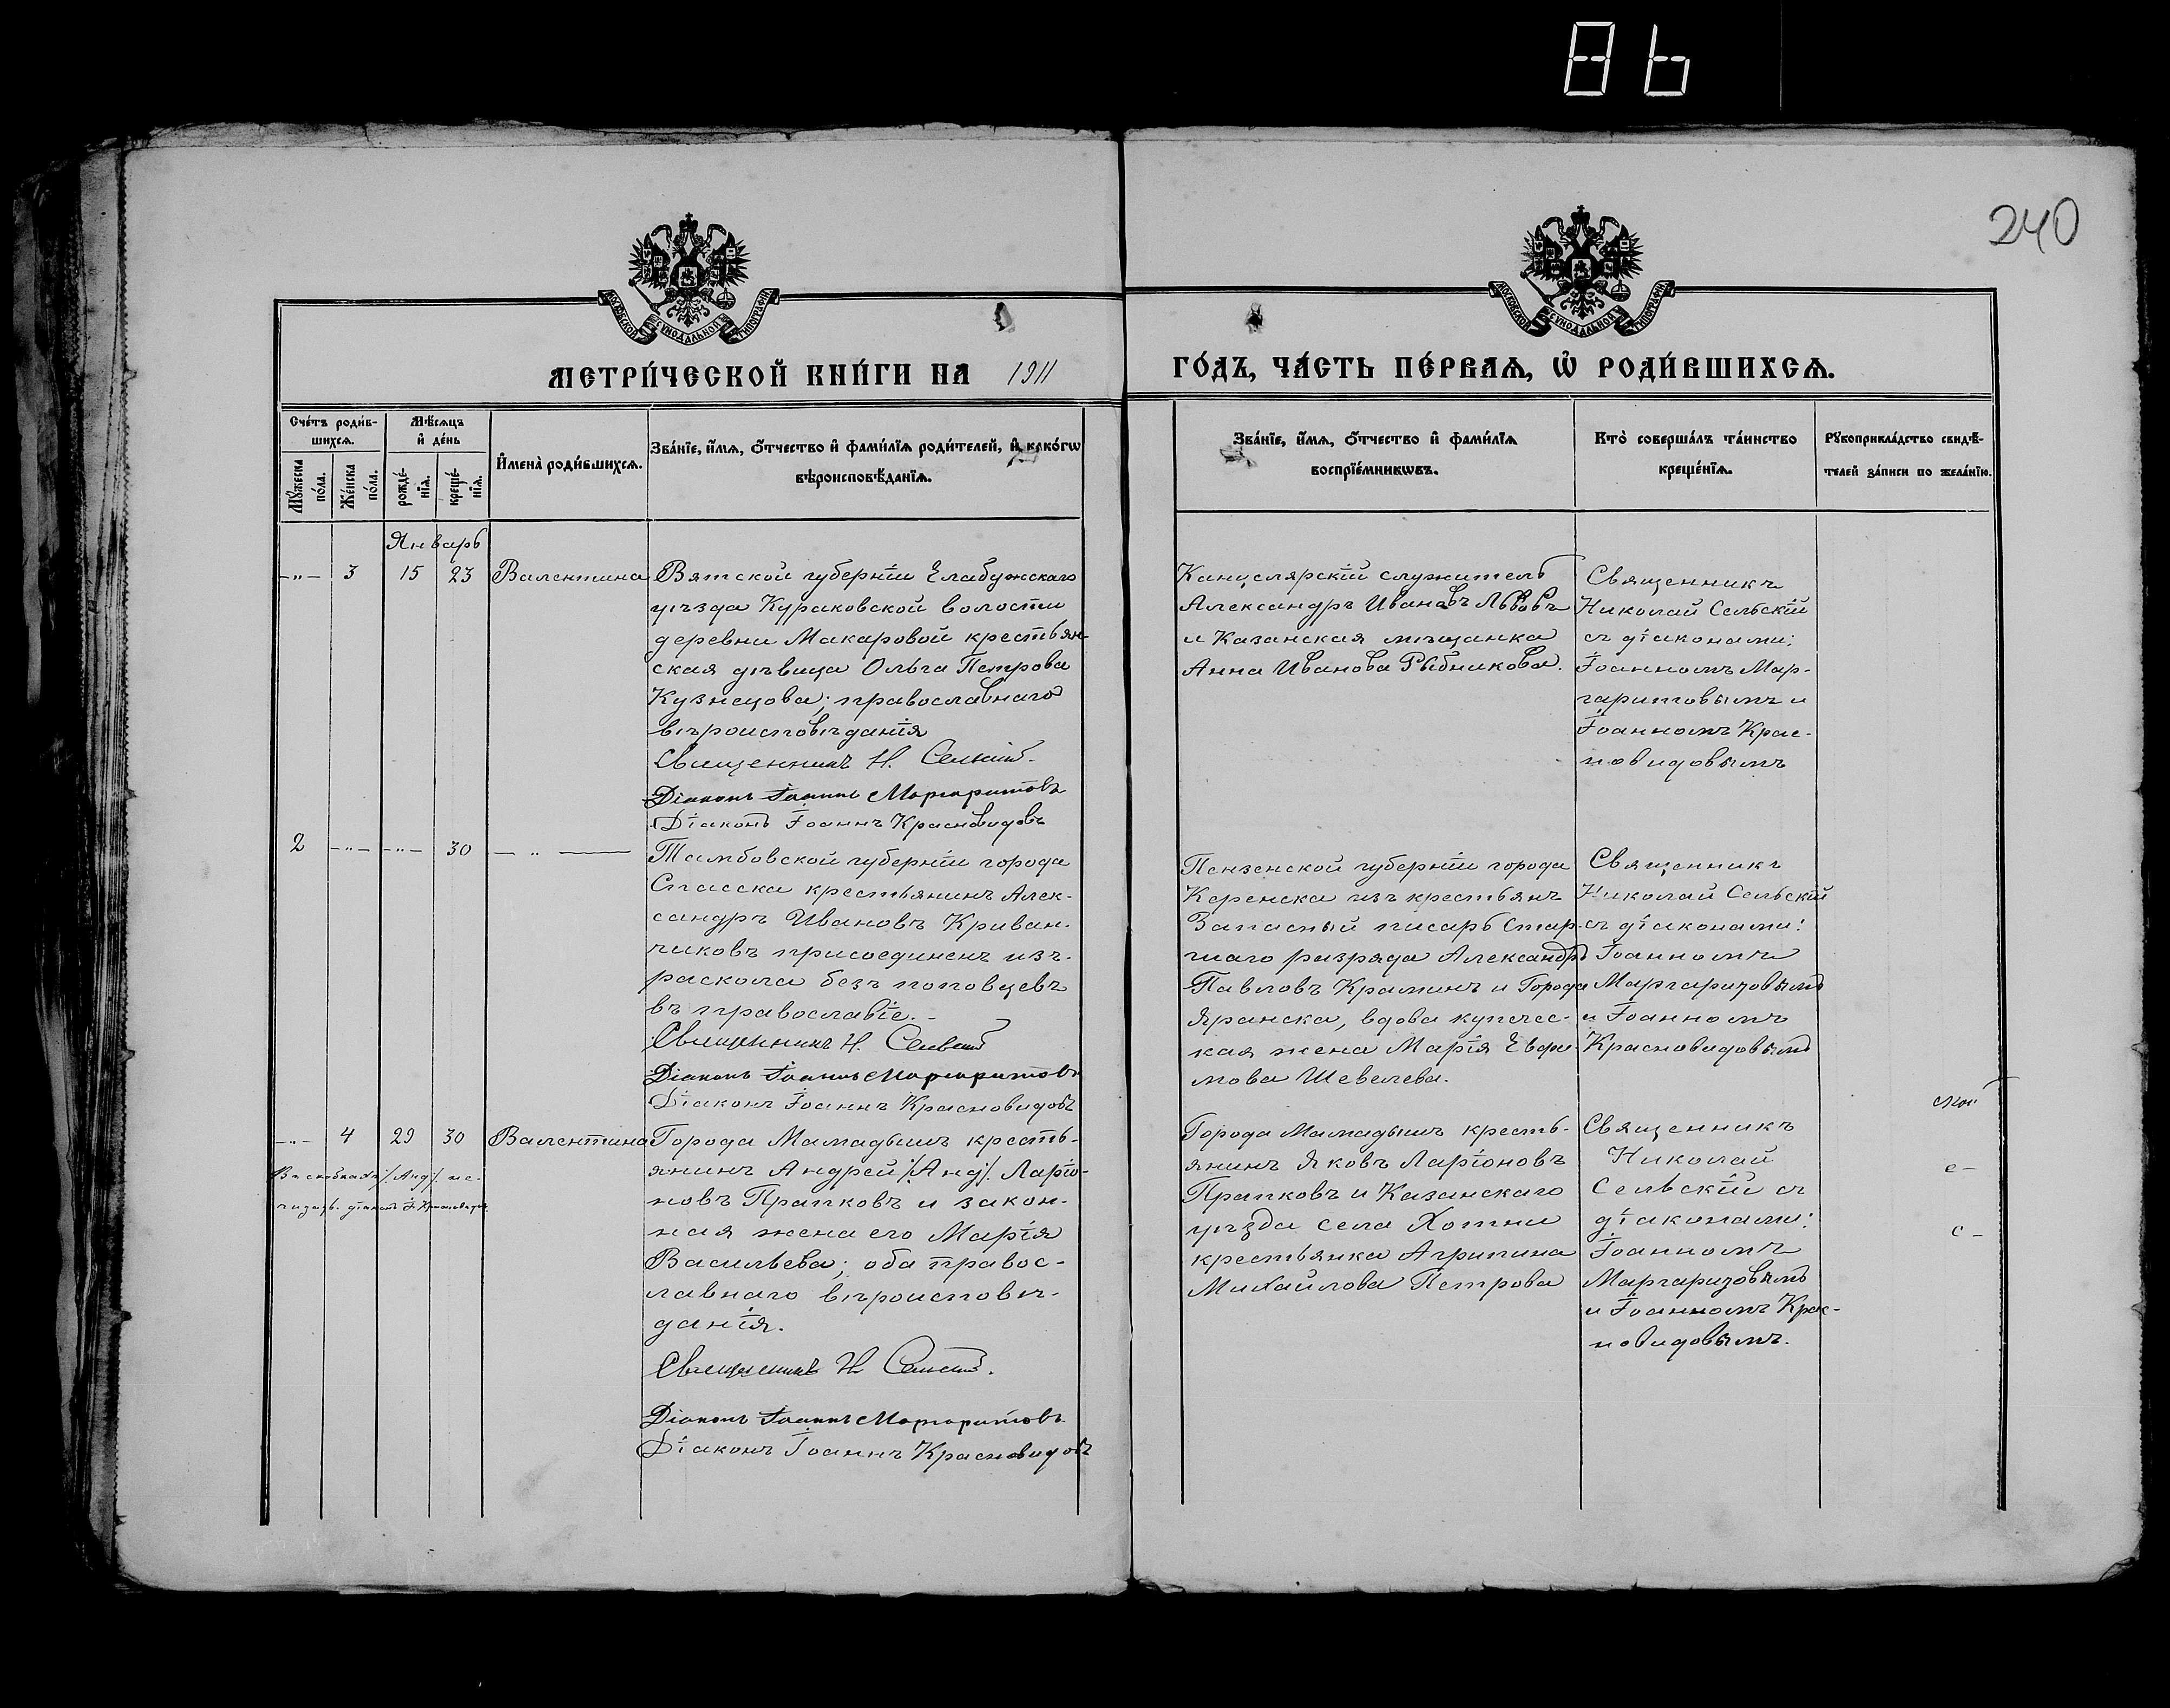 86
240
МОСКОВСКОЙ СУНОДАЛЬНОЙ ТИПОГРАФІИ
МОСКОВСКОЙ СУНОДАЛЬНОЙ ТИПОГРАФІИ
МЕТРИ́ЧЕСКОЙ КНИ́ГИ НА 1911
ГО́ДЪ, ЧА́СТЬ ПЕ́РВАѦ, Ѽ РОДИ́ВШИХСѦ.
Сче́тъ роди́в-
шихсѧ.
Мꙋ́жеска
по́ла.
Же́нска
по́ла.
Мѣ́сѧцъ
и҆ де́нь
рожде́-
нїѧ.
креще́-
нїѧ.
И҆мена̀ роди́вшихсѧ.
Зва́нїе, и҆́мѧ, ѻ҆́тчество и҆ фами́лїѧ роди́телей, и҆ како́гѡ
вѣроисповѣ́данїѧ.
Зва́нїе, и҆́мѧ, ѻ҆́тчество и҆ фами́лїѧ
воспрїе́мникѡвъ.
Кто̀ соверша́лъ та́инство
креще́нїѧ.
Рꙋкоприкла́дство свидѣ́-
телей за́писи по жела́нїю.
Январь
-"- 3 15 23 Валентина
Вятской губерніи Елабужскаго
уѣзда Кураковской волости
деревни Макаровой крестьян-
ская дѣвица Ольга Петрова
Кузнецова; православнаго
вѣроисповѣданія
Священникъ Н. Сельскій.
Діаконъ Іоаннъ Маргаритовъ
Діаконъ Іоаннъ Красновидовъ
Канцелярскій служитель
Александръ Ивановъ Львовъ
и Казанская мѣщанка
Анна Иванова Рыбникова.
Священникъ
Николай Сельскій
съ діаконами:
Іоанномъ Мар-
гаритовымъ и
Іоанномъ Крас-
новидовымъ
2 -"- -"- 30 - " -
Тамбовской губерніи города
Спасска крестьянинъ Алек-
сандръ Ивановъ Криван-
чиковъ присоединенъ изъ
раскола безъ поповцевъ
въ православіе. -
Священникъ Н. Сельскій
Діаконъ Іоаннъ Маргаритовъ
Діаконъ Іоаннъ Красновидовъ
Пензенской губерніи города
Керенска изъ крестьянъ
Запасный писарь Стар-
шаго разряда Александръ
Павловъ Краминъ и Города
Яранска, вдова купечес-
кая жена Марія Евфи-
мова Шевелева.
Священникъ
Николай Сельскій
съ діаконами:
Іоанномъ
Маргаритовымъ
и Іоанномъ
Красновидовымъ
-"- 4 29 30 Валентина
Въ скобкахъ /:Анд:/ не-
читать. діаконъ І. Красновидовъ
Города Мамадышъ кресть-
янинъ Андрей /:Анд:/. Ларіо-
новъ Прапковъ и закон-
ная жена его Марія
Васильева; оба правос-
лавнаго вѣроисповѣ-
данія.
Священникъ Н. Сельскій.
Діаконъ Іоаннъ Маргаритовъ
Діаконъ Іоаннъ Красновидовъ
Города Мамадышъ кресть-
янинъ Яковъ Ларіоновъ
Прапковъ и Казанскаго
уѣзда села Хотни
крестьянка Агрипина
Михайлова Петрова
Священникъ
Николай
Сельскій съ
діаконами:
Іоанномъ
Маргаритовымъ
и Іоанномъ Крас-
новидовымъ.
е-
с-